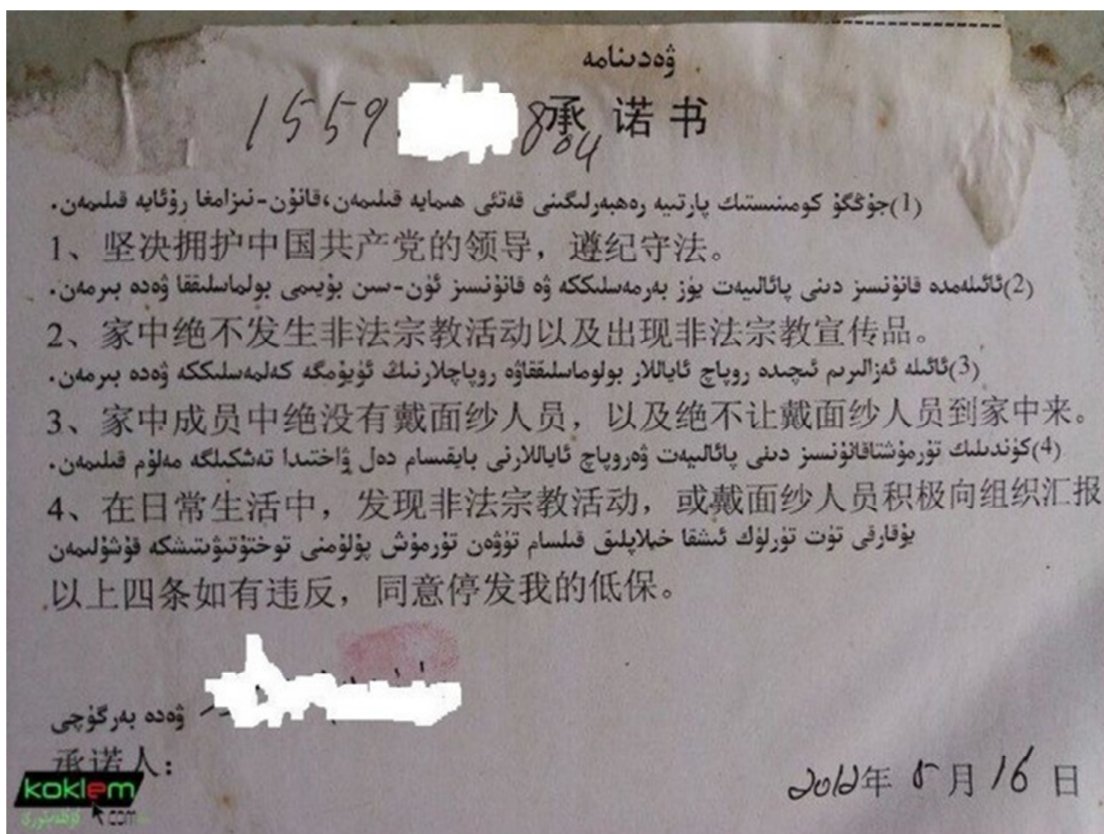 ۋەدىنامە
1559 8804 承诺书
(1)جۇڭگۇ كوممىنىستىك پارتىيە رەھبەرلىگىنى قەتئى ھىمايە قىلىمەن،قانۇن-نىزامغا رىئايە قىلىمەن.
1、坚决拥护中国共产党的领导，遵纪守法。
(2)ئائىلەمدە قانۇنسىز دىنى پائالىيەت يۈز بەرمەسلىككە ۋە قانۇنسىز ئۈن-سىن بۇيىمى بولماسلىققا ۋەدە بىرمەن.
2、家中绝不发生非法宗教活动以及出现非法宗教宣传品。
(3)ئائىلە ئەزالىرىم ئىچىدە روپاچ ئاياللار بولوماسلىققاۋە روپاچلارنىڭ ئۈيۈمگە كەلمەسلىككە ۋەدە بىرمەن.
3、家中成员中绝没有戴面纱人员，以及绝不让戴面纱人员到家中来。
(4)كۈندىلىك تۇرمۇشتاقانۇنسىز دىنى پائالىيەت ۋەروپاچ ئاياللارنى بايقىسام دەل ۋاختىدا تەشكىلگە مەلۇم قىلىمەن.
4、在日常生活中，发现非法宗教活动，或戴面纱人员积极向组织汇报
يۇقارقى تۆت تۈرلۈك ئىشقا خىلاپلىق قىلسام تۆۋەن تۇرمۇش پۇلۇمنى توختۇتىۋىتىشكە قۇشۇلىمەن
以上四条如有违反，同意停发我的低保。
ۋەدە بەرگۈچى
承诺人：
2012年 5月 16日
koklem
.com